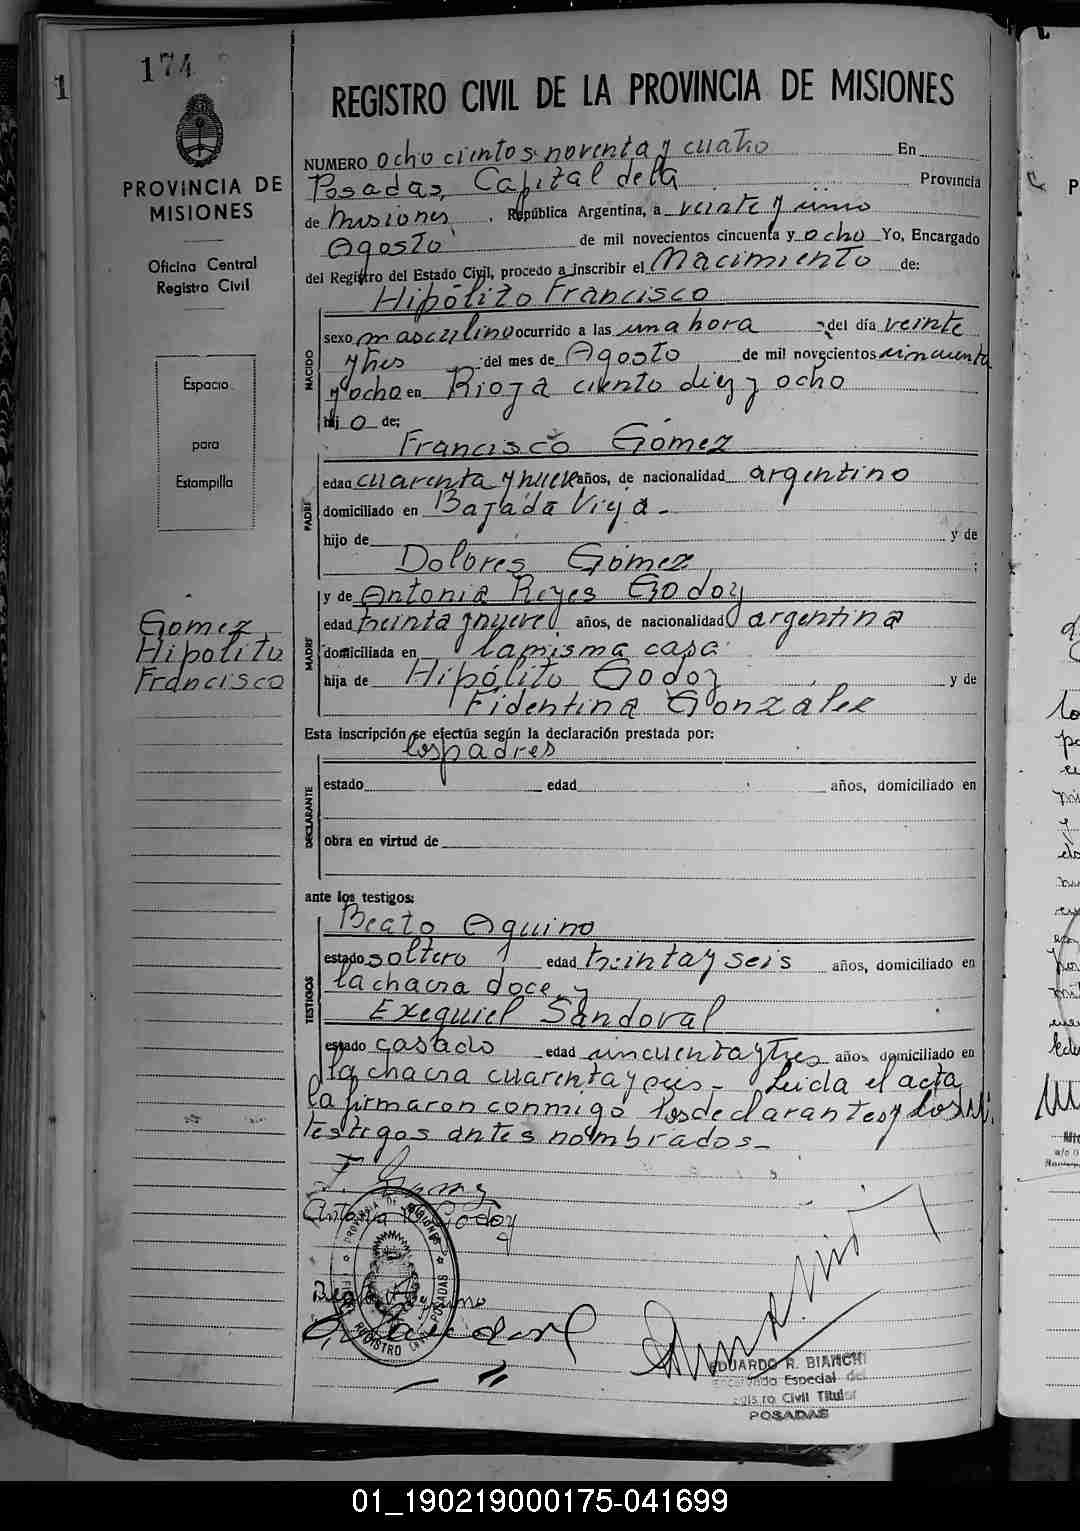 174
1
PROVINCIA DE
MISIONES
Oficina Central
Registro Civil
Espacio
para
Estampilla
Gomez
Hipólito
Francisco
REGISTRO CIVIL DE LA PROVINCIA DE MISIONES
NUMERO ocho cientos noventa y cuatro En
Posadas, Capital de la Provincia
de Misiones, República Argentina, a veinte y
Agosto de mil novecientos cincuenta y ocho Yo, Encargado
del Registro del Estado Civil, procedo a inscribir el Nacimiento de:
Hipólito Francisco
NACIDO
sexo masculino ocurrido a las una hora del día veinte
y tres del mes de Agosto de mil novecientos cincuenta
y ocho en Rioja ciento diez y ocho
hijo de:
Francisco Gómez
PADRE
edad cuarenta y nueve años, de nacionalidad argentino
domiciliado en Bajada Vieja.-
hijo de y de
Dolores Gómez ;
y de Antonia Reyes Godoy
MADRE
edad treinta y nueve años, de nacionalidad argentina
domiciliada en la misma casa
hija de Hipólito Godoy y de
Fidentina González
Esta inscripción se efectúa según la declaración prestada por:
los padres
DECLARANTE
estado edad años, domiciliado en
obra en virtud de
ante los testigos:
Beato Aquino
TESTIGOS
estado soltero edad treinta y seis años, domiciliado en
la chacra doce y
Exequiel Sandoval
estado casado edad cincuenta y tres años domiciliado en
la chacra cuarenta y seis - Leida el acta
la firmaron conmigo los declarantes y los
testigos antes nombrados -
F. Gomez
Antonia R Godoy
Beato Aquino
PROVINCIA DE MISIONES
REGISTRO CIVIL POSADAS
EDUARDO R. BIANCHI
Encargado Especial del
Registro Civil Titular
POSADAS
01_190219000175-041699